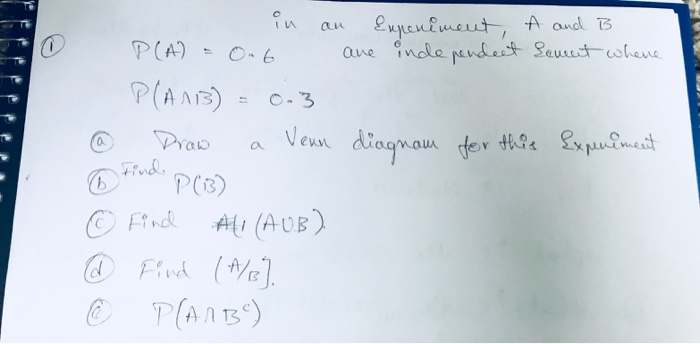 in an Experiment, A and B
① P(A) = 0.6 are independent event where
P(A∩B) = 0.3
ⓐ Draw a Venn diagram for this Experiment
ⓑ Find P(B)
ⓒ Find (A∪B)
ⓓ Find (A/B].
ⓔ P(A∩Bᶜ)